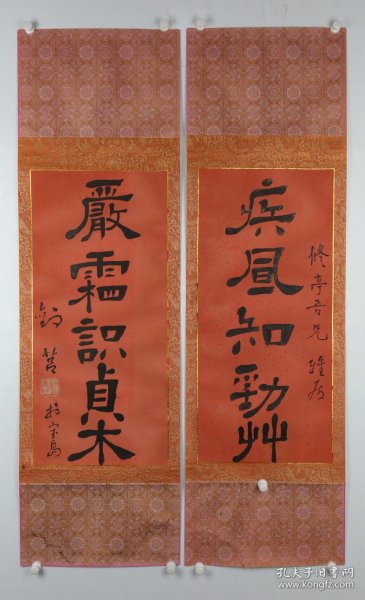 疾風知勁艸
修亭吾兄雅屬
嚴霜識貞木
於宝島
孔夫子旧书网
www.kongfz.com